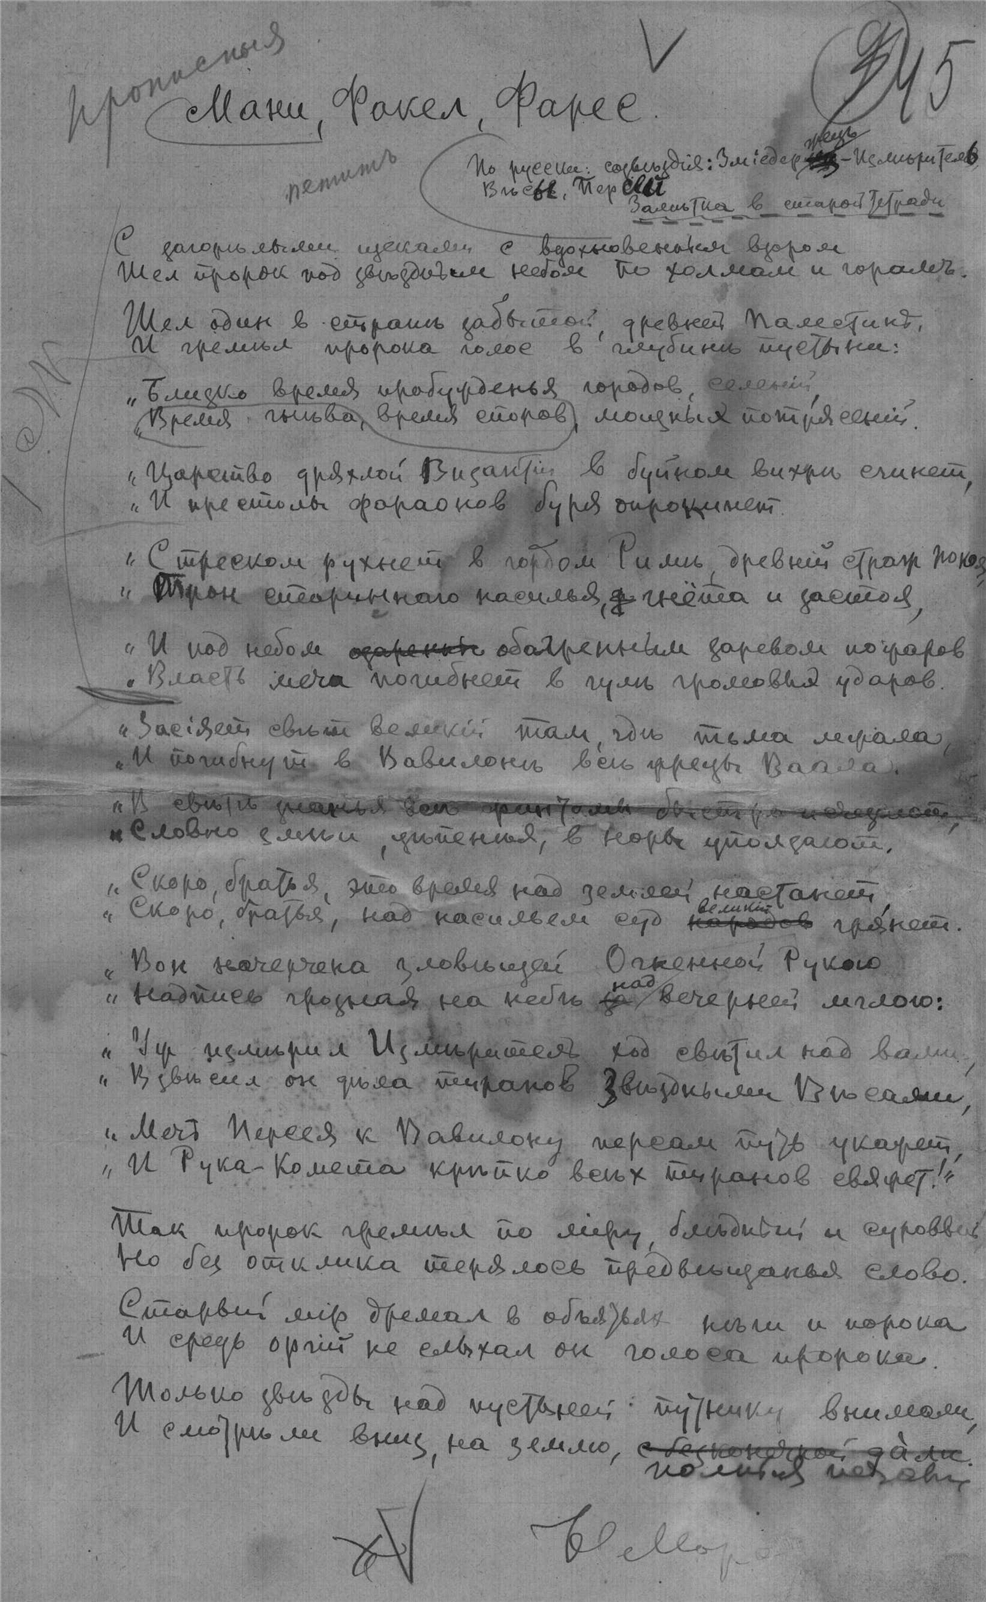 прописныя
45
Мани, Факел, Фарес.
петитъ
По русски: созвѣздія: Зміедержецъ-Измѣритель,
Вѣсы, Персей
Замѣтка в старой тетради
С загорѣлыми щеками с вдохновенным взором
Шел пророк под звѣздным небом по холмам и горамъ.
Шел один в странѣ забытой, древней Палестинѣ,
И гремѣл пророка голос в глубинѣ пустыни:
„Близко время пробужденья городов, селеній,
„Время гнѣва, время споров, мощных потрясеній.
„Царство дряхлой Византіи в буйном вихрѣ сгинет,
„И престолы фараонов буря опрокинет.
„С треском рухнет в гордом Римѣ, древній страж покоя,
„Трон старинного насилья, гнёта и застоя,
„И под небом обагренным заревом пожаров
„Власть меча погибнет в гулѣ громовых ударов.
„Засіяет свѣт великій там, гдѣ тьма лежала,
„И погибнут в Вавилонѣ всѣ жрецы Ваала.
„В свѣтѣ знанья всѣ фантомы быстро исчезают,
„Словно змѣи, цѣпенѣя, в норы уползают.
„Скоро, братья, это время над землей настанет,
„Скоро, братья, над насильем суд великій народов грянет.
„Вон начерчена зловѣщей Огненной Рукою
„Надпись грозная на небѣ над вечерней мглою:
„Уж измѣрил Измѣритель ход свѣтил над вами,
„Взвѣсил он дѣла тиранов Звѣздными Вѣсами,
„Меч Персея к Вавилону персам путь укажет,
„И Рука-Комета крѣпко всѣх тиранов свяжет!"
Так пророк гремѣл по міру, блѣдный и суровый,
Но без отклика терялось предвѣщанья слово.
Старый мір дремал в объятьях нѣги и порока
И средь оргій не слыхал он голоса пророка.
Только звѣзды над пустыней путнику внимали,
И смотрѣли вниз, на землю, с безконечной дали.
полныя
Н Моро